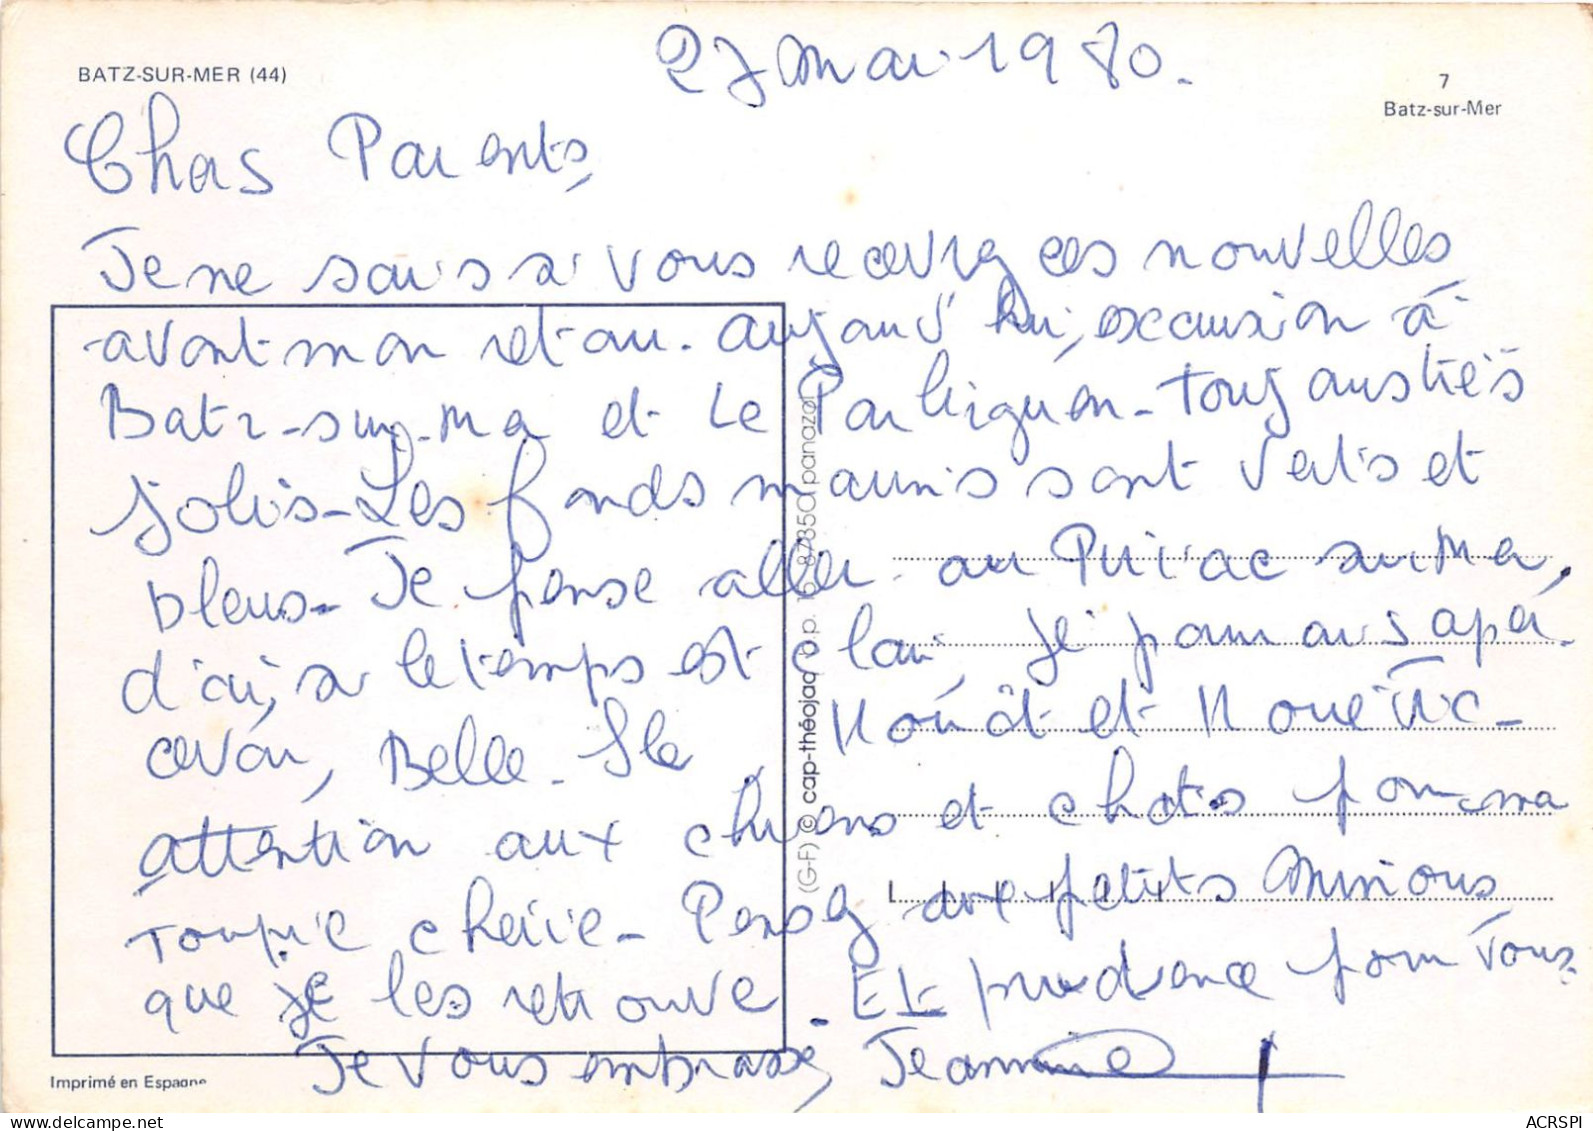 BATZ-SUR-MER (44)
27 Mai 1980.
7
Batz-sur-Mer
Chers Parents,
Je ne sais si vous recevrez ces nouvelles
avant mon retour. Aujourd'hui, excursion à
Batz-sur-Mer et Le Pouliguen - Toujours très
jolis - Les fonds marins sont verts et
bleus - Je pense aller au Piriac sur Mer,
d'ici, si le temps est clair, je pourrai aper
cevoir, Belle-Ile, Houat et Hoëdic -
attention aux chiens et chats pour ma
toupie chérie - Pensez aux petits Minous
que je les retrouve. Et prudence pour vous.
Je vous embrasse, Jeannine
(G-F) © cap-théojac b.p. 16 87350 panazol
Imprimé en Espagne
ACRSPI